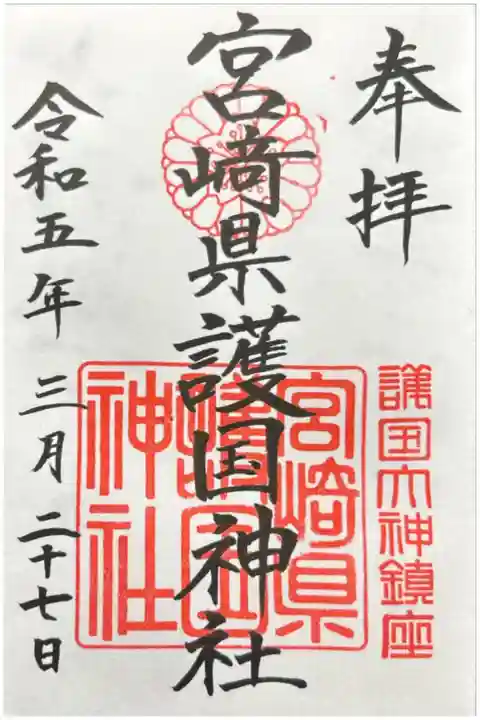 奉拝
護国大神鎮座
宮﨑県護国神社
宮崎県
護国
神社
令和五年 三月 二十七日